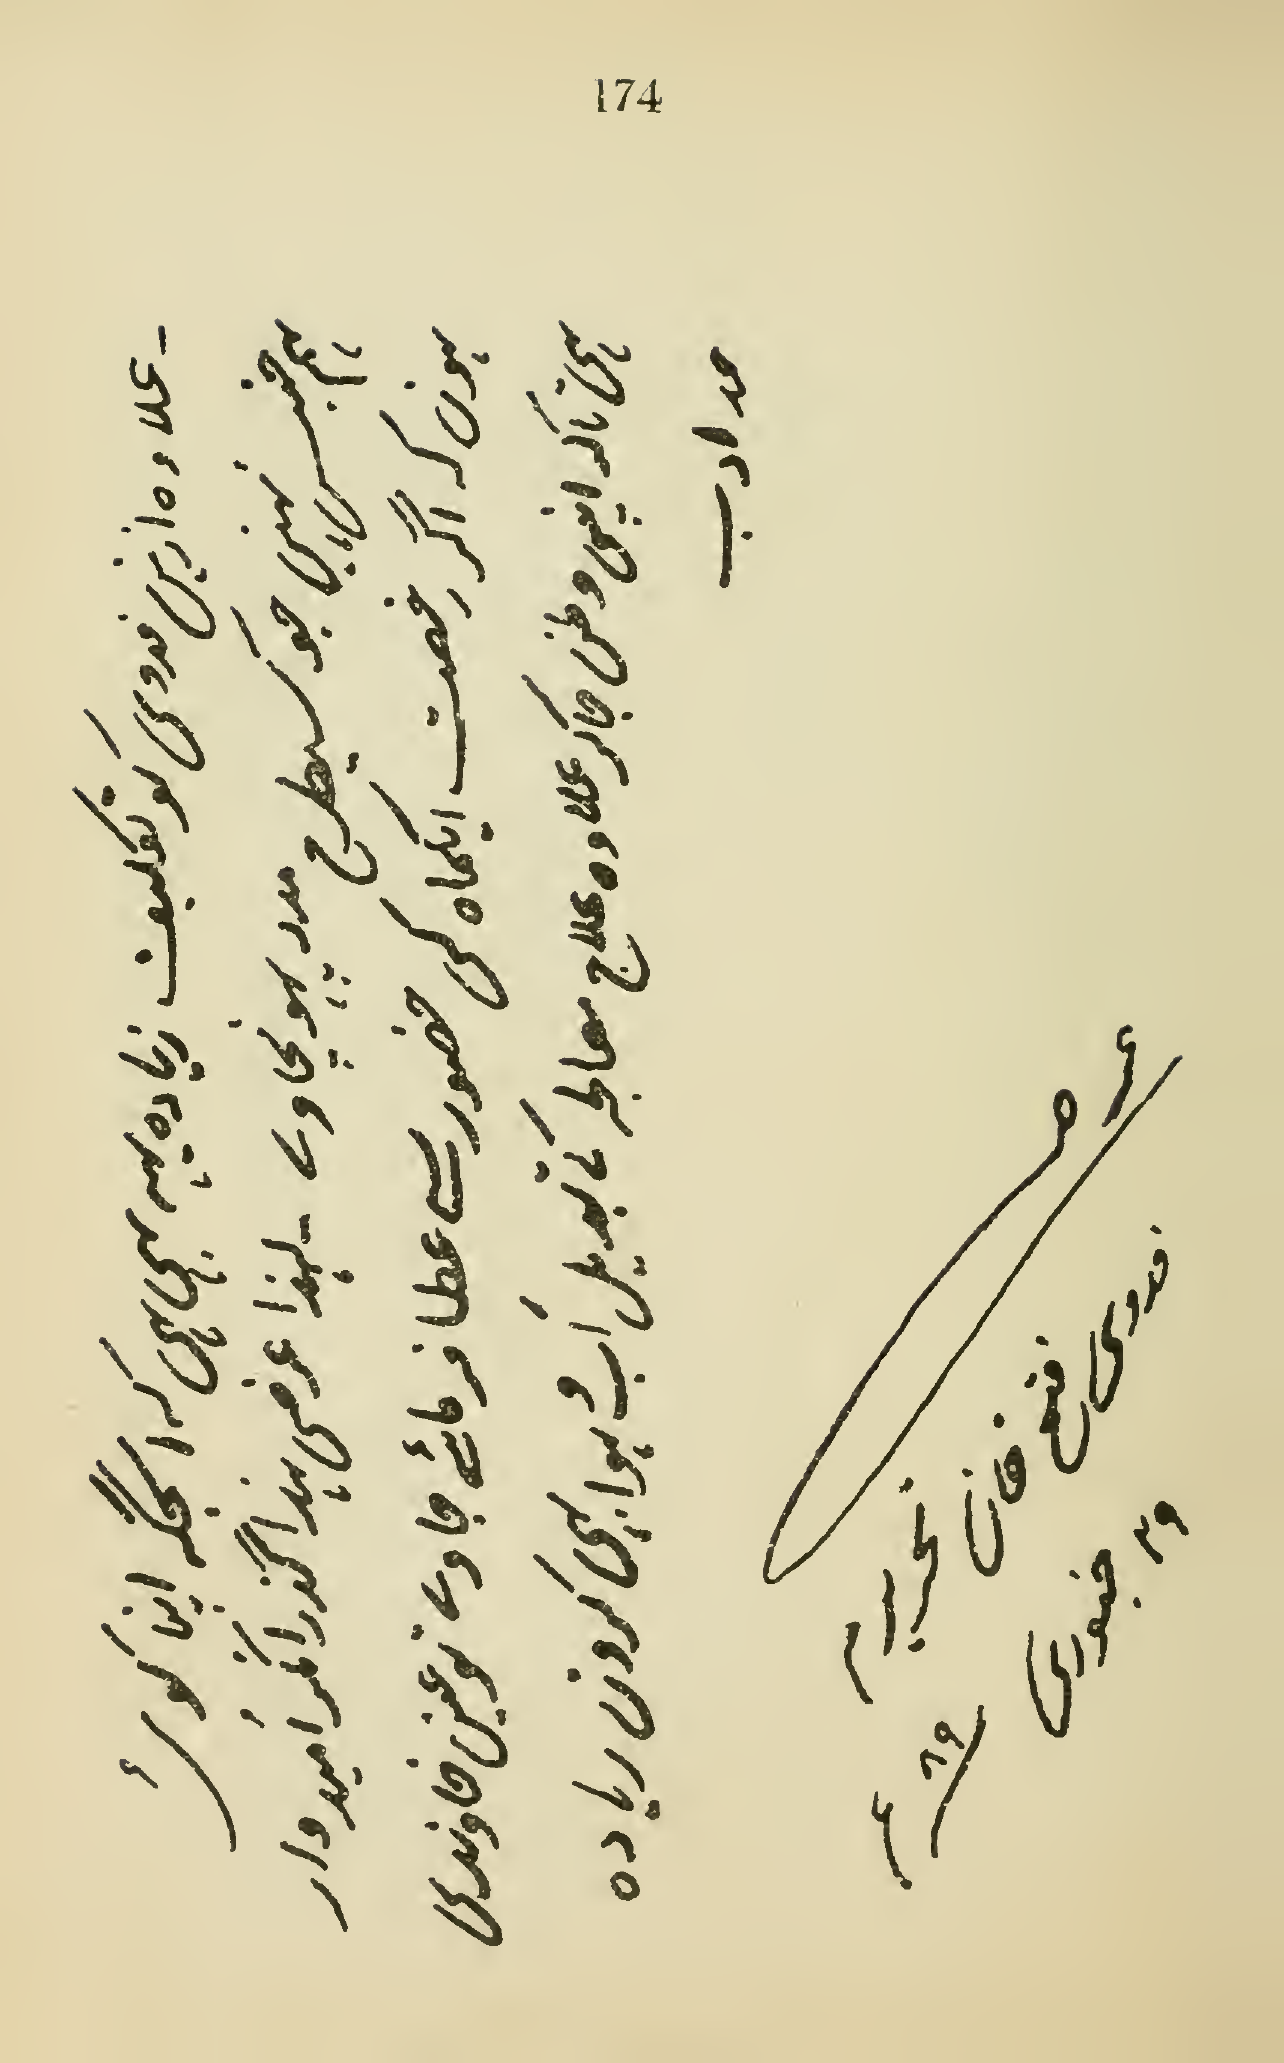 174
ـ علاوہ ازین فدوی کو تکلیف زیادہ یہہ بھی ہی کہ اسجگہ اپنا کوئی
ہم جنس نہین جو کسیطرح مدد پہونچاوے ـ لہذا عرضی ہذا گذرانکر امیدوار
ہون کہ اگر رخصت ایکماہ کی حضور سے عطا فرمائے جاوے تو عین خاوندی
ہی تاکہ اپنی وطن جاکر علاوہ علاج معالجہ کے تبدیل آب و ہوا بھی کرون زیادہ
حد ادب
فدوی فتح خان
۲۹ جنوری